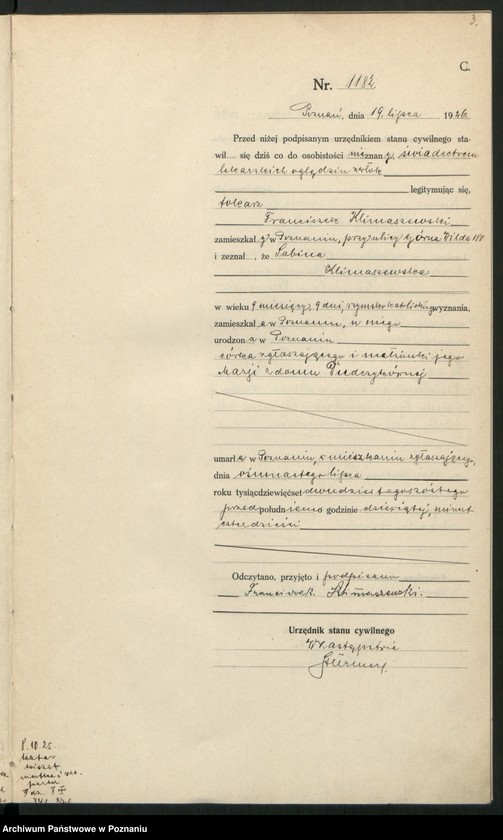 3.
C.
Nr. 1182
Poznań, dnia 19. lipca 1926
Przed niżej podpisanym urzędnikiem stanu cywilnego sta-
wił się dziś co do osobistości nieznany, świadectwem
lekarskich oględzin zwłok
legitymując się,
tokarz
Franciszek Klimaszewski
zamieszkały w Poznaniu, przy ulicy Górna Wilda 180
i zeznał, że Sabina
Klimaszewska
w wieku 9 miesięcy, 9 dni, rzymsko katolickiego wyznania,
zamieszkała w Poznaniu, u niego
urodzona w Poznaniu
córka zgłaszającego i małżonki jego
Marji z domu
umarła w Poznaniu, w mieszkaniu zgłaszającego,
dnia ośmnastego lipca
roku tysiącdziewięćset dwudziestegoszóstego
przedpołudniem o godzinie dziewiątej, minut
czterdzieści
Odczytano, przyjęto i podpisano
Franciszek Klimaszewski.
Urzędnik stanu cywilnego
W zastępstwie
8.10.25
Archiwum Państwowe w Poznaniu